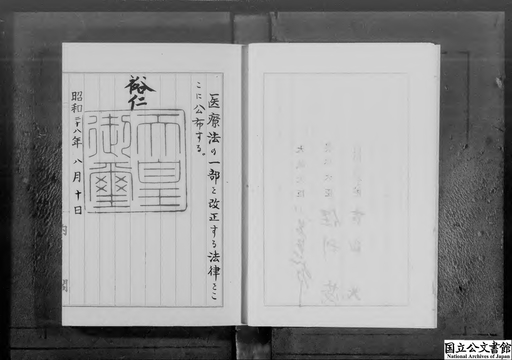 医療法の一部を改正する法律をこ
こに公布する。
裕仁
天皇
御璽
昭和二十八年八月十日
内閣
国立公文書館
National Archives of Japan